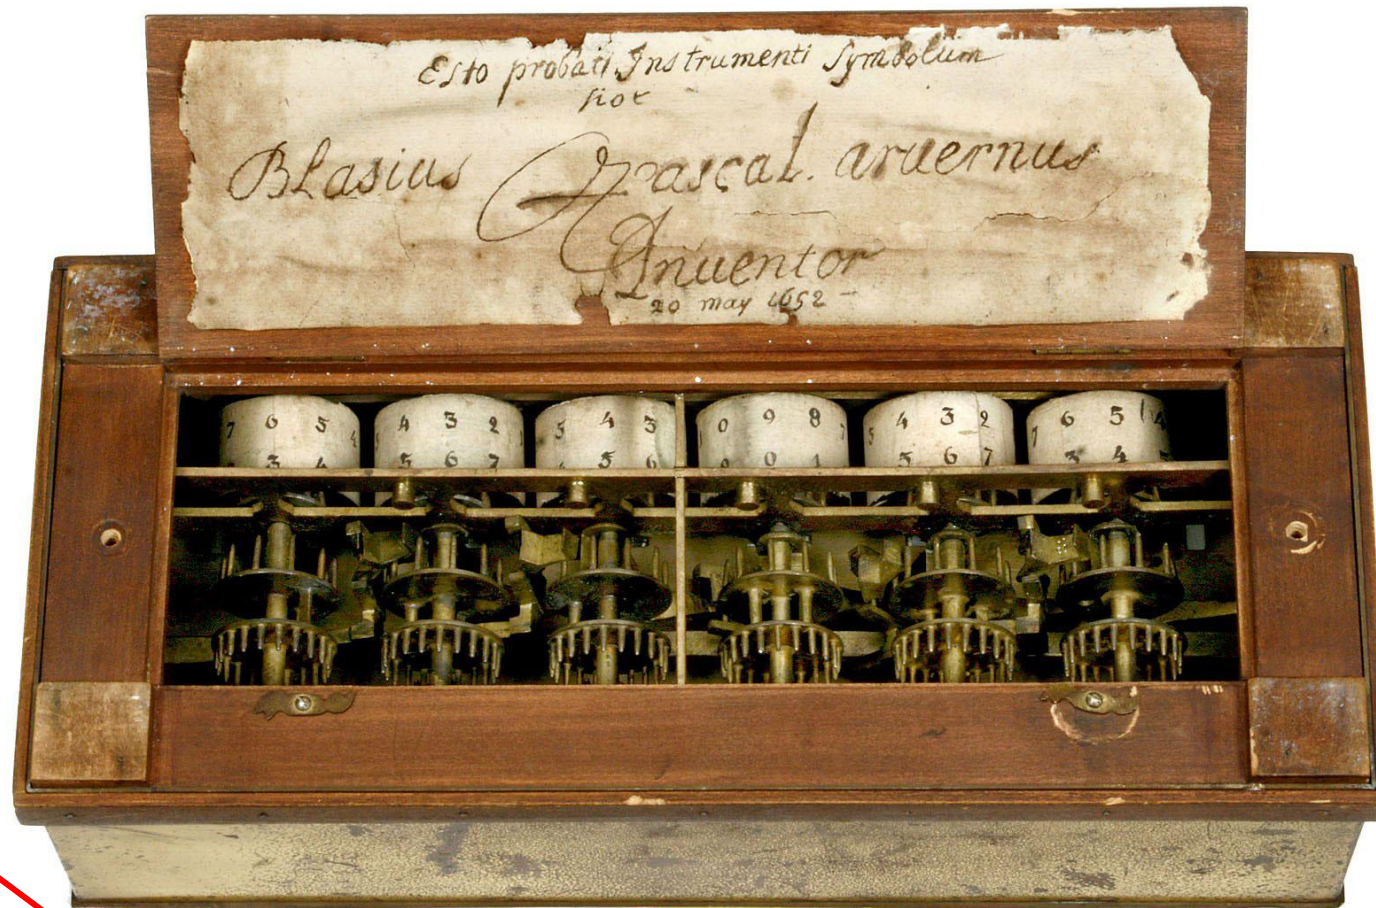 Esto probati Instrumenti Symbolum
hoc
Blasius Pascal. aruernus
Inuentor
20 may 1652
7 6 5 4 4 3 2 5 4 3 0 9 8 7 5 4 3 2 7 6 5 4
3 4 5 6 7 5 6 0 5 6 7 3 4